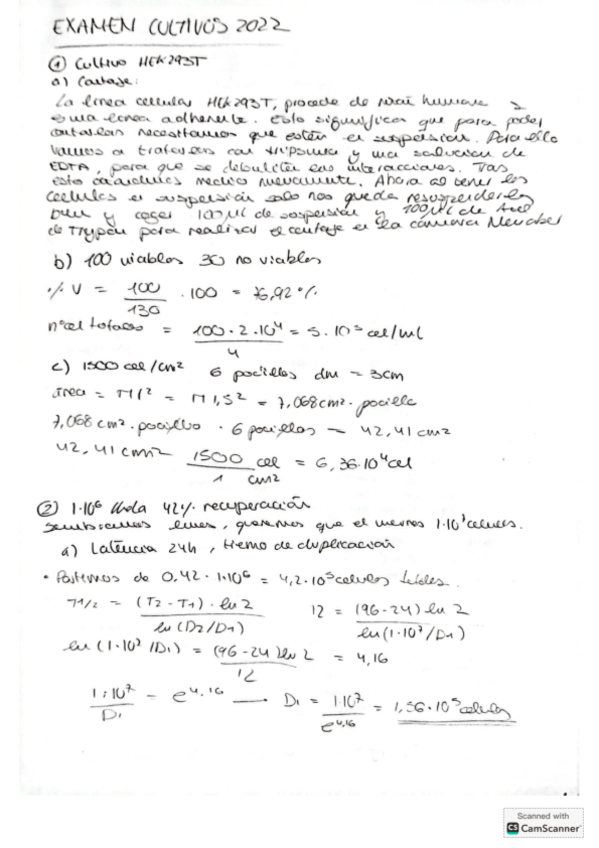 EXAMEN CULTIVOS 2022
① Cultivo HEK293T
a) Contaje:
La línea celular HEK293T, procede de riñón humano y
es una línea adherente. Esto significa que para poder
contarlas necesitamos que estén en suspensión. Para ello
vamos a tratarlas con tripsina y una solución de
EDTA, para que se debiliten las interacciones. Tras
esto añadimos medio nuevamente. Ahora al tener las
células en suspensión solo nos queda resuspenderlas
bien y coger 100 µl de suspensión y 100 µl de Azul
de Trypan para realizar el contaje en la cámara Neubauer
b) 100 viables 30 no viables
% V = 100/130 · 100 = 76,92 %
nº cel totales = 100 · 2 · 10⁴/4 = 5 · 10⁵ cel/ml
c) 1500 cel/cm² 6 pocillos dm = 3cm
área = πr² = π1,5² = 7,068 cm² · pocillo
7,068 cm² · pocillo · 6 pocillos = 42,41 cm²
42,41 cm² 1500/1 cel/cm² = 6,36·10⁴ cel
② 1·10⁶ 42% recuperación
Sembramos lunes, queremos que el viernes 1·10⁷ células.
a) Latencia 24h, tiempo de duplicación
• Partimos de 0,42 · 1·10⁶ = 4,2 · 10⁵ células totales.
T1/2 = (T2 - T1) · ln 2/ln (D2/D1) 12 = (96-24) ln 2/ln(1·10⁷/D1)
ln (1·10⁷/D1) = (96-24) ln 2/12 = 4,16
1·10⁷/D1 = e^4,16 → D1 = 1·10⁷/e^4,16 = 1,56·10⁵ células
Scanned with
CS CamScanner